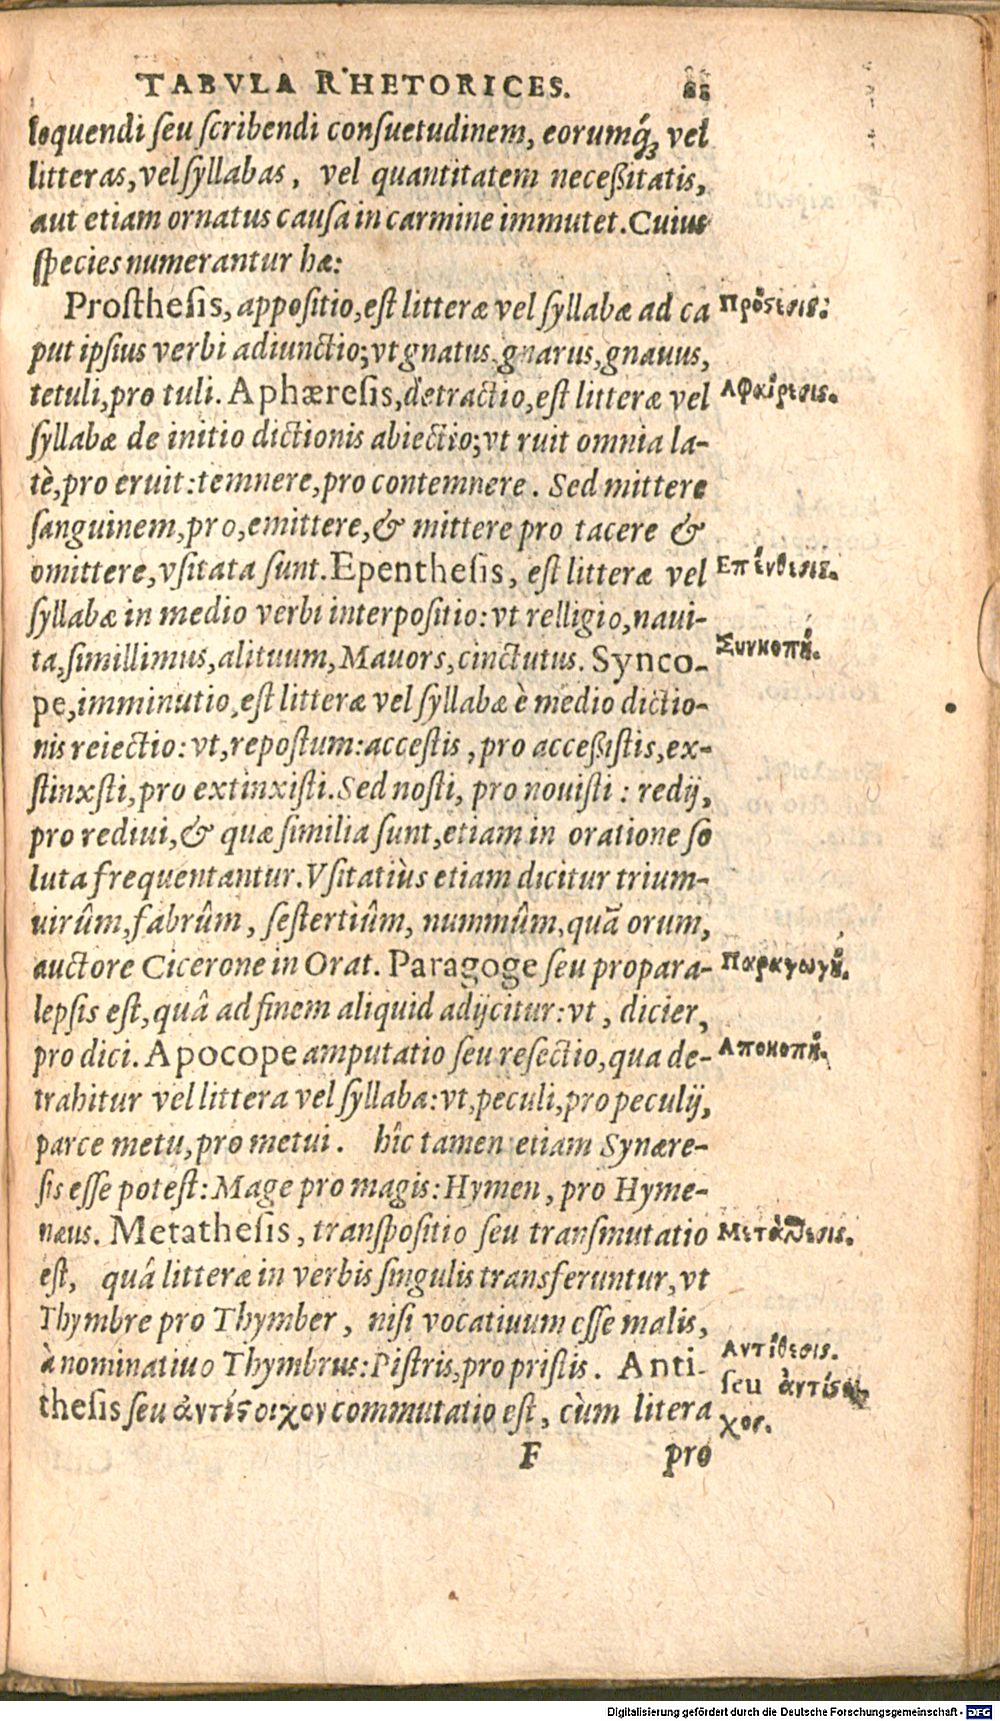 TABVLA RHETORICES.
loquendi seu scribendi consuetudinem, eorumq́; vel
litteras, vel syllabas, vel quantitatem neceßitatis,
aut etiam ornatus causa in carmine immutet. Cuius
species numerantur hæ:
Prosthesis, appositio, est litteræ vel syllabæ ad ca
Πρόςεσις.
put ipsius verbi adiunctio; vt gnatus, gnarus, gnauus,
tetuli, pro tuli. Aphæresis, detractio, est litteræ vel
Αφαίρεσις.
syllabæ de initio dictionis abiectio; vt ruit omnia la-
tè, pro eruit: temnere, pro contemnere. Sed mittere
sanguinem, pro, emittere, & mittere pro tacere &
omittere, vsitata sunt. Epenthesis, est litteræ vel
Επένθεσις.
syllabæ in medio verbi interpositio: vt relligio, naui-
ta, simillimus, alituum, Mauors, cinctutus. Synco-
Συνκοπή.
pe, imminutio, est litteræ vel syllabæ è medio dictio-
nis reiectio: vt, repostum: accestis, pro acceßistis, ex-
stinxsti, pro extinxisti. Sed nosti, pro nouisti: redij,
pro rediui, & quæ similia sunt, etiam in oratione so
luta frequentantur. Vsitatiùs etiam dicitur trium-
uirûm, fabrûm, sestertiûm, nummûm, quã orum,
auctore Cicerone in Orat. Paragoge seu propara-
Παραγωγή.
lepsis est, quâ ad finem aliquid adijcitur: vt, dicier,
pro dici. Apocope amputatio seu resectio, qua de-
Αποκοπή.
trahitur vel littera vel syllaba: vt, peculi, pro peculij,
parce metu, pro metui. hîc tamen etiam Synære-
sis esse potest: Mage pro magis: Hymen, pro Hyme-
næus. Metathesis, transpositio seu transmutatio
Μετάθεσις.
est, quâ litteræ in verbis singulis transferuntur, vt
Thymbre pro Thymber, nisi vocatiuum esse malis,
à nominatiuo Thymbrus: Pistris, pro pristis. Anti-
Αντίθεσις.
seu ἀντίςοι
thesis seu ἀντίςοιχον commutatio est, cùm litera
χος.
F pro
Digitalisierung gefördert durch die Deutsche Forschungsgemeinschaft - DFG